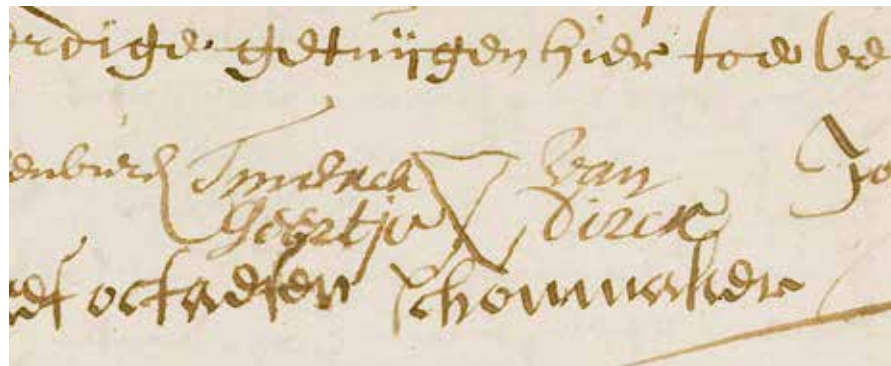 rdige getuijgen hier toe be
enburch Tmerck van Jo
Geertje Dirck
octaefsen schoenmaker